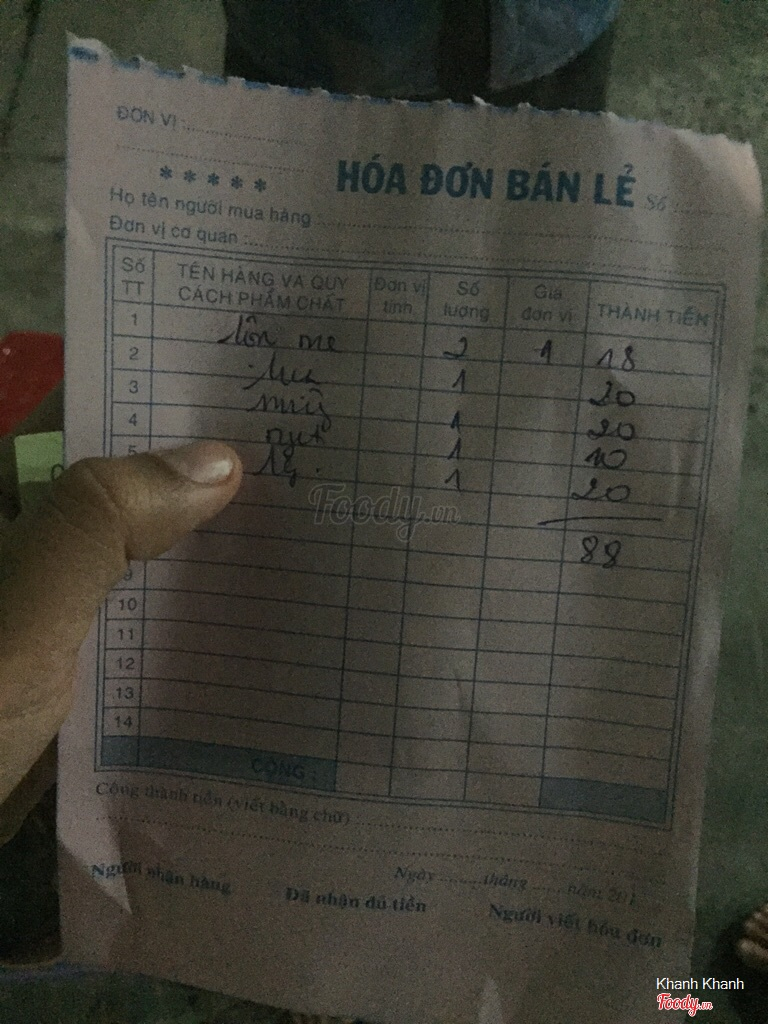 ĐƠN VỊ :
* * * * *
HÓA ĐƠN BÁN LẺ Số :
Họ tên người mua hàng
Đơn vị cơ quan :
Số TT TÊN HÀNG VÀ QUY CÁCH PHẨM CHẤT Đơn vị tính Số lượng Giá đơn vị THÀNH TIỀN
1 me 2 18
2 1 20
3 1 20
4 1 10
5 1 20
88
9
10
11
12
13
14
CỘNG :
Cộng thành tiền (viết bằng chữ)
Ngày tháng năm 201
Người nhận hàng Đã nhận đủ tiền Người viết hóa đơn
Foody.vn
Khanh Khanh
Foody.vn